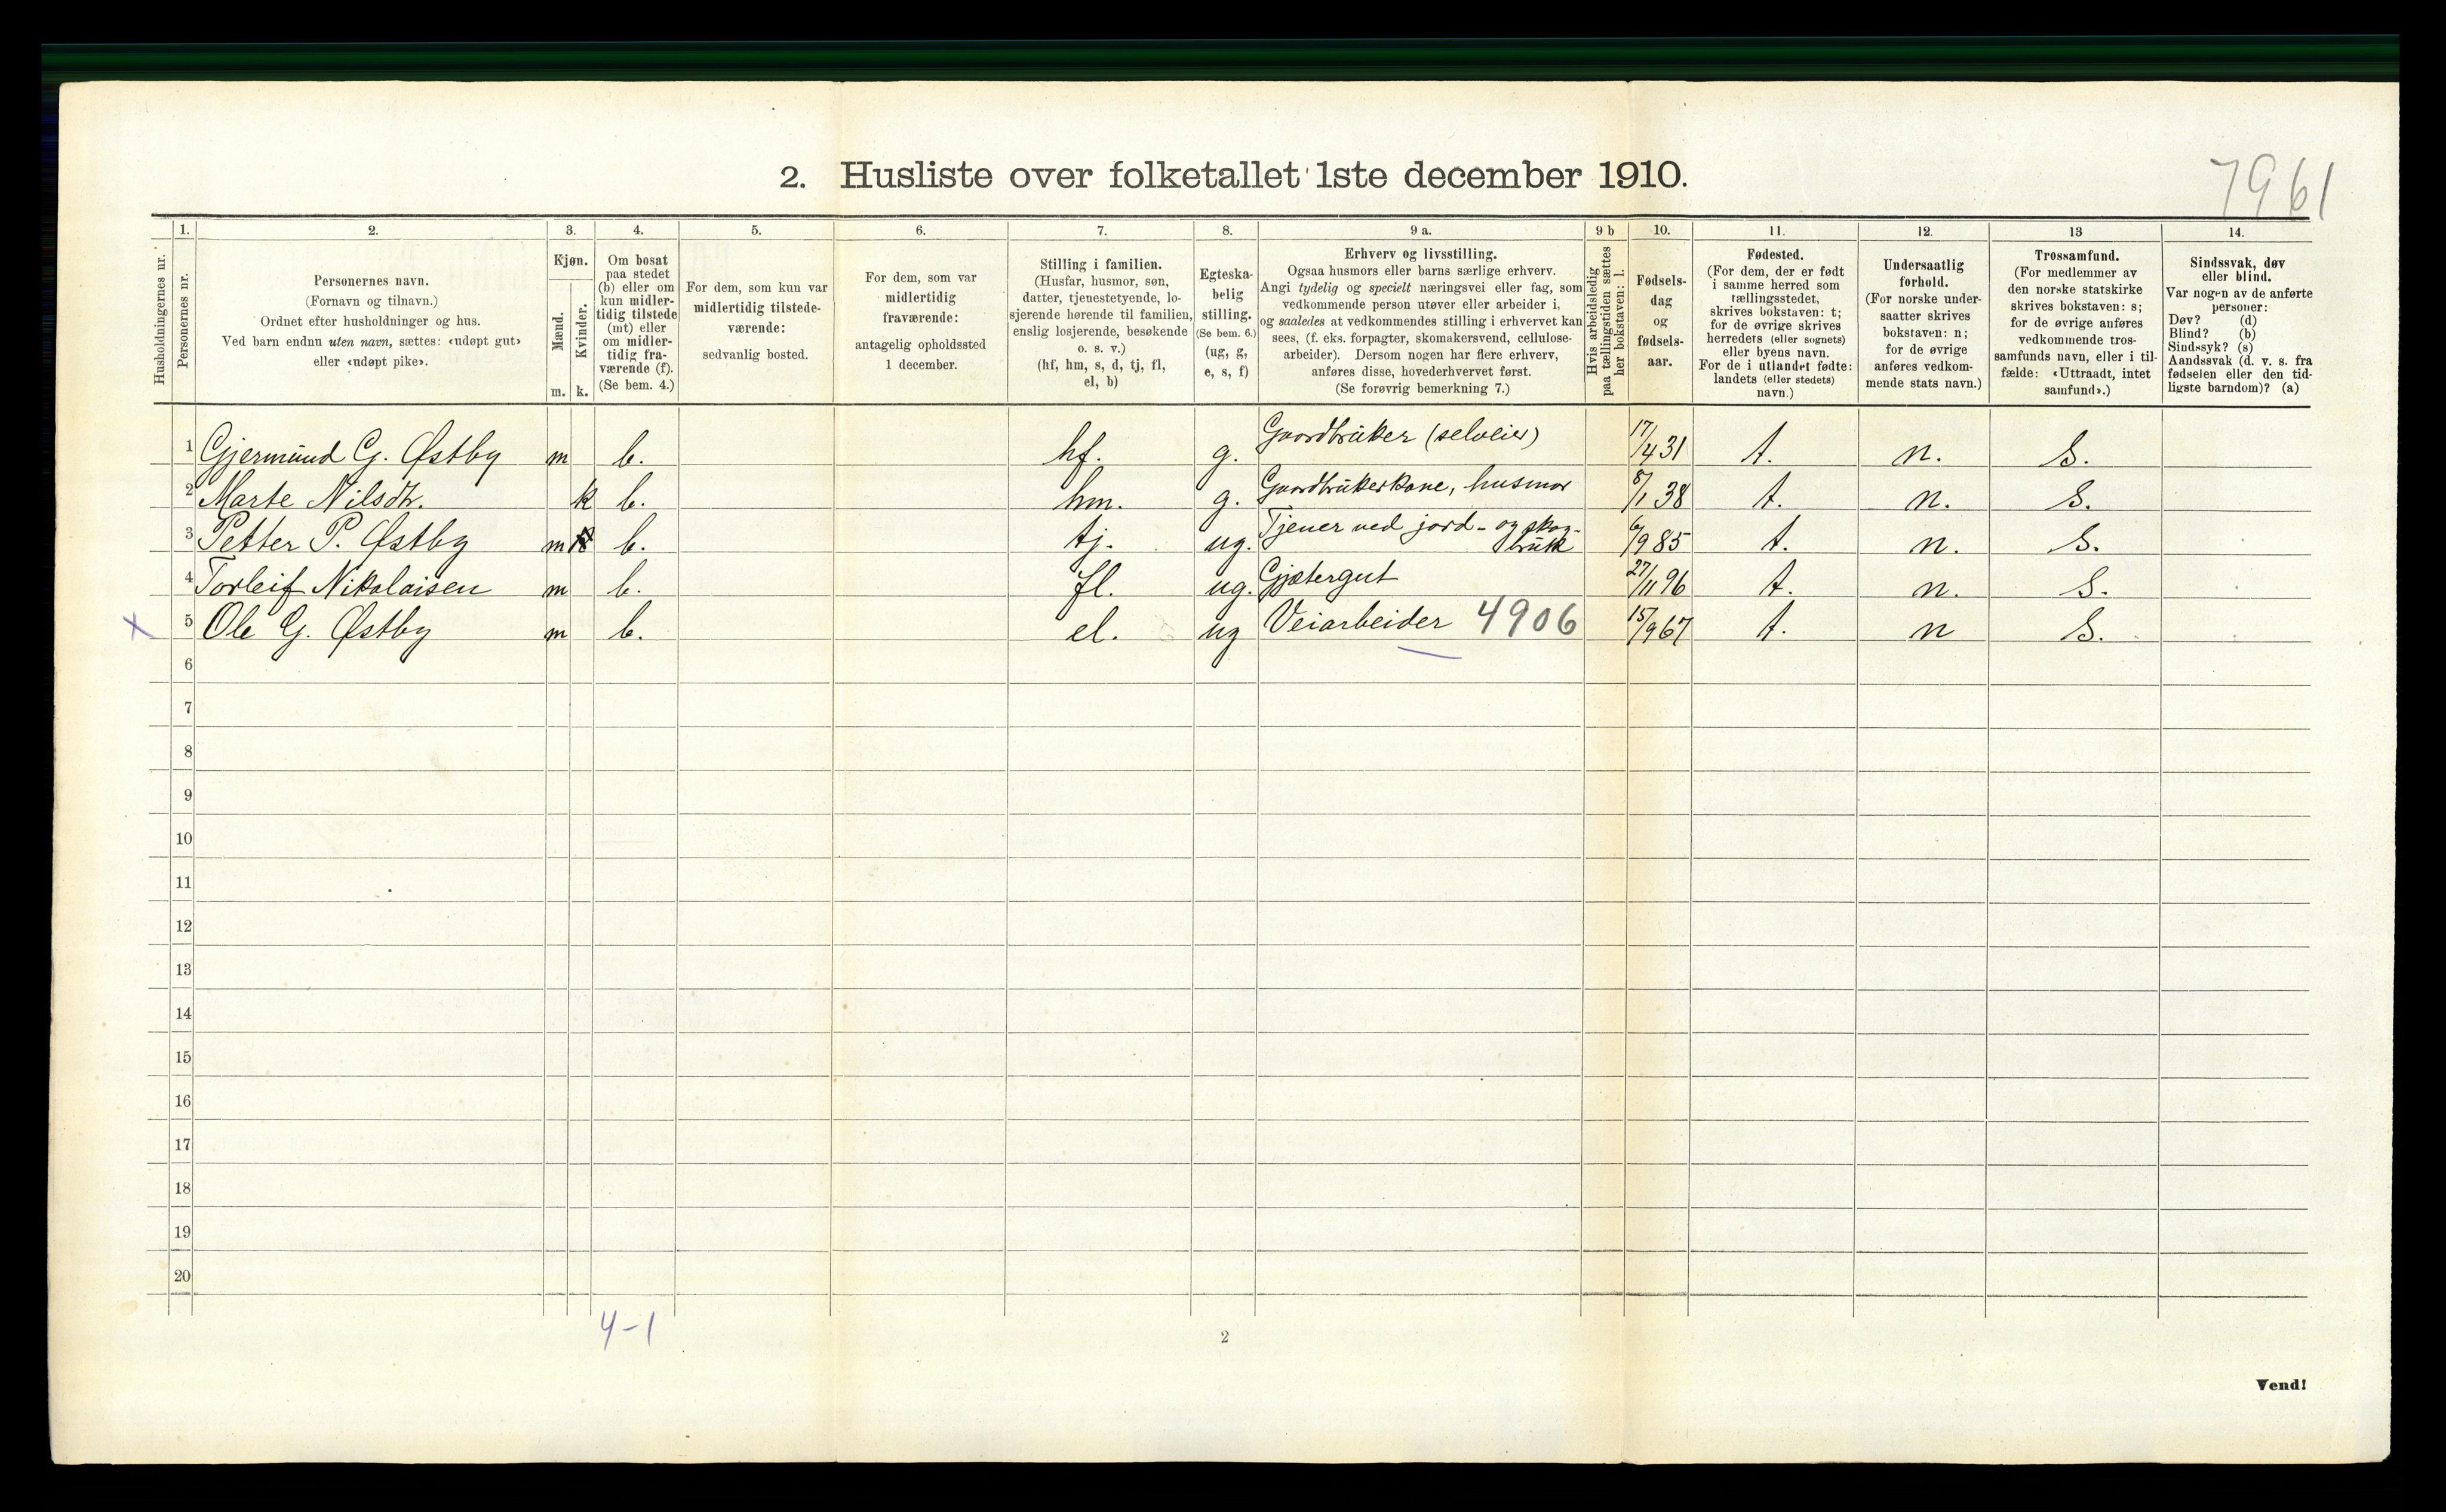 7961
2. Husliste over folketallet 1ste december 1910.
Husholdningernes nr.
1.
Personernes nr.
2.
Personernes navn.
(Fornavn og tilnavn.)
Ordnet efter husholdninger og hus.
Ved barn endnu uten navn, sættes: «udøpt gut»
eller «udøpt pike».
3.
Kjøn.
Mænd.
Kvinder.
m. k.
4.
Om bosat
paa stedet
(b) eller om
kun midler-
tidig tilstede
(mt) eller
om midler-
tidig fra-
værende (f).
(Se bem. 4.)
5.
For dem, som kun var
midlertidig tilstede-
værende:
sedvanlig bosted.
6.
For dem, som var
midlertidig
fraværende:
antagelig opholdssted
1 december.
7.
Stilling i familien.
(Husfar, husmor, søn,
datter, tjenestetyende, lo-
sjerende hørende til familien,
enslig losjerende, besøkende
o. s. v.)
(hf, hm, s, d, tj, fl,
el, b)
8.
Egteska-
belig
stilling.
(Se bem. 6.)
(ug, g,
e, s, f)
9 a.
Erhverv og livsstilling.
Ogsaa husmors eller barns særlige erhverv.
Angi tydelig og specielt næringsvei eller fag, som
vedkommende person utøver eller arbeider i,
og saaledes at vedkommendes stilling i erhvervet kan
sees, (f. eks. forpagter, skomakersvend, cellulose-
arbeider). Dersom nogen har flere erhverv,
anføres disse, hovederhvervet først.
(Se forøvrig bemerkning 7.)
9 b
Hvis arbeidsledig
paa tællingstiden sættes
her bokstaven: l.
10.
Fødsels-
dag
og
fødsels-
aar.
11.
Fødested.
(For dem, der er født
i samme herred som
tællingsstedet,
skrives bokstaven: t;
for de øvrige skrives
herredets (eller sognets)
eller byens navn.
For de i utlandet fødte:
landets (eller stedets)
navn.)
12.
Undersaatlig
forhold.
(For norske under-
saatter skrives
bokstaven: n;
for de øvrige
anføres vedkom-
mende stats navn.)
13
Trossamfund.
(For medlemmer av
den norske statskirke
skrives bokstaven: s;
for de øvrige anføres
vedkommende tros-
samfunds navn, eller i til-
fælde: «Uttraadt, intet
samfund».)
14.
Sindssvak, døv
eller blind.
Var nogen av de anførte
personer:
Døv? (d)
Blind? (b)
Sindssyk? (s)
Aandssvak (d. v. s. fra
fødselen eller den tid-
ligste barndom)? (a)
1 Gjermund G. Østby m b. hf. g. Gaardbruker (selveier) 17/4 31 t. n. S.
2 Marte Nilsdtr. k b. hm. g. Gaardbrukerkone, husmor 8/1 38 t. n. S.
3 Petter P. Østby m b. tj. ug. Tjener ved jord- og skog-
bruk 6/9 85 t. n. S.
4 Torleif Nikolaisen m b. fl. ug. Gjætergut 27/11 96 t. n. S.
x 5 Ole G. Østby m b. el. ug Veiarbeider 4906 15/9 67 t. n S.
6
7
8
9
10
11
12
13
14
15
16
17
18
19
20
4-1
2
Vend!